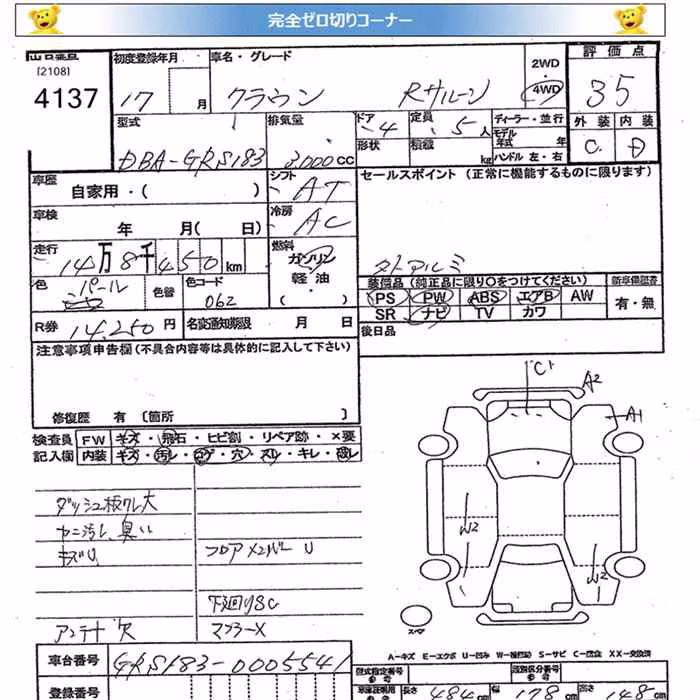 完全ゼロ切りコーナー
出品番
[2108]
4137
初度登録年月
17 月
車名・グレード
クラウン Rサルーン
2WD
・
4WD
評価点
35
外装 内装
C D
型式
DBA-GRS183
排気量
3000CC
ドア
4
定員
5人
形状
積載
kg
ディーラー・並行
モデル年式 年
ハンドル 左・右
車歴
自家用・( )
シフト
AT
セールスポイント (正常に機能するものに限ります)
車検
年 月( 日)
冷房
AC
走行
14万8千450km
燃料
ガソリン
軽油
・( )
色
パール
色替
色コード
062
装備品 (純正品に限り○をつけてください)
新車保証書
PS PW ABS エアB AW
SR ナビ TV カワ
有・無
R券 14,250円
名変通知期限 月 日
後日品
注意事項申告欄(不具合内容等は具体的に記入して下さい)
修復歴 有 〔箇所 〕
検査員
記入欄
FW キズ・飛石・ヒビ割・リペア跡・×要
内装 キズ・汚れ・コゲ・穴・スレ・キレ・破レ
ダッシュ板ワレ大
ヤニ汚レ 臭い
キズU
フロアメンバーU
下廻りSC
アンテナ欠
マフラーX
C1
A2
A1
W2
W2
スペア
A-キズ E-エクボ U-凹み W-補修跡 S-サビ C-腐食 XX-交換済
車台番号
GRS183-0005541
登録番号
型式指定番号
類別区分番号
長さ 484cm
幅 178cm
高さ 148cm